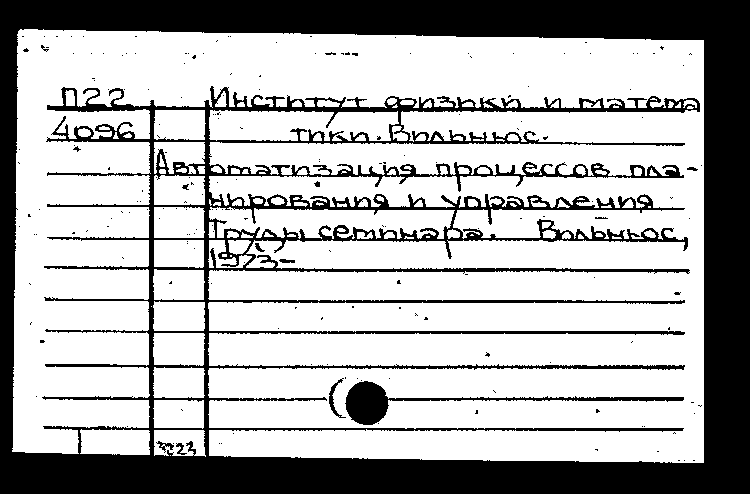 П22 Институт физики и матема
4096 тики. Вильнюс.
Автоматизация процессов пла-
нирования и управления
Труды семинара. Вильнюс,
1973-
3223